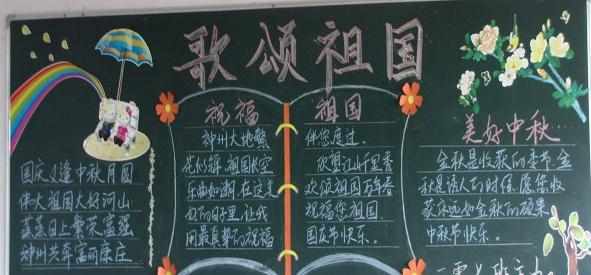 歌颂祖国
国庆又逢中秋月圆
伟大祖国大好河山
蒸蒸日上繁荣富强
神州共奔富丽康庄
祝福
神州大地繁
花似锦,祖国长空
乐曲如潮,在这美
好的日子里,让我
用最真挚的祝福
祖国
伴您度过。
眺望江山千里秀
欢颂祖国万年春
祝福您祖国
国庆节快乐。
美好中秋…
金秋是收获的季节,金
秋是诱人的时候,愿您收
获永远如金秋的硕果
中秋节快乐。